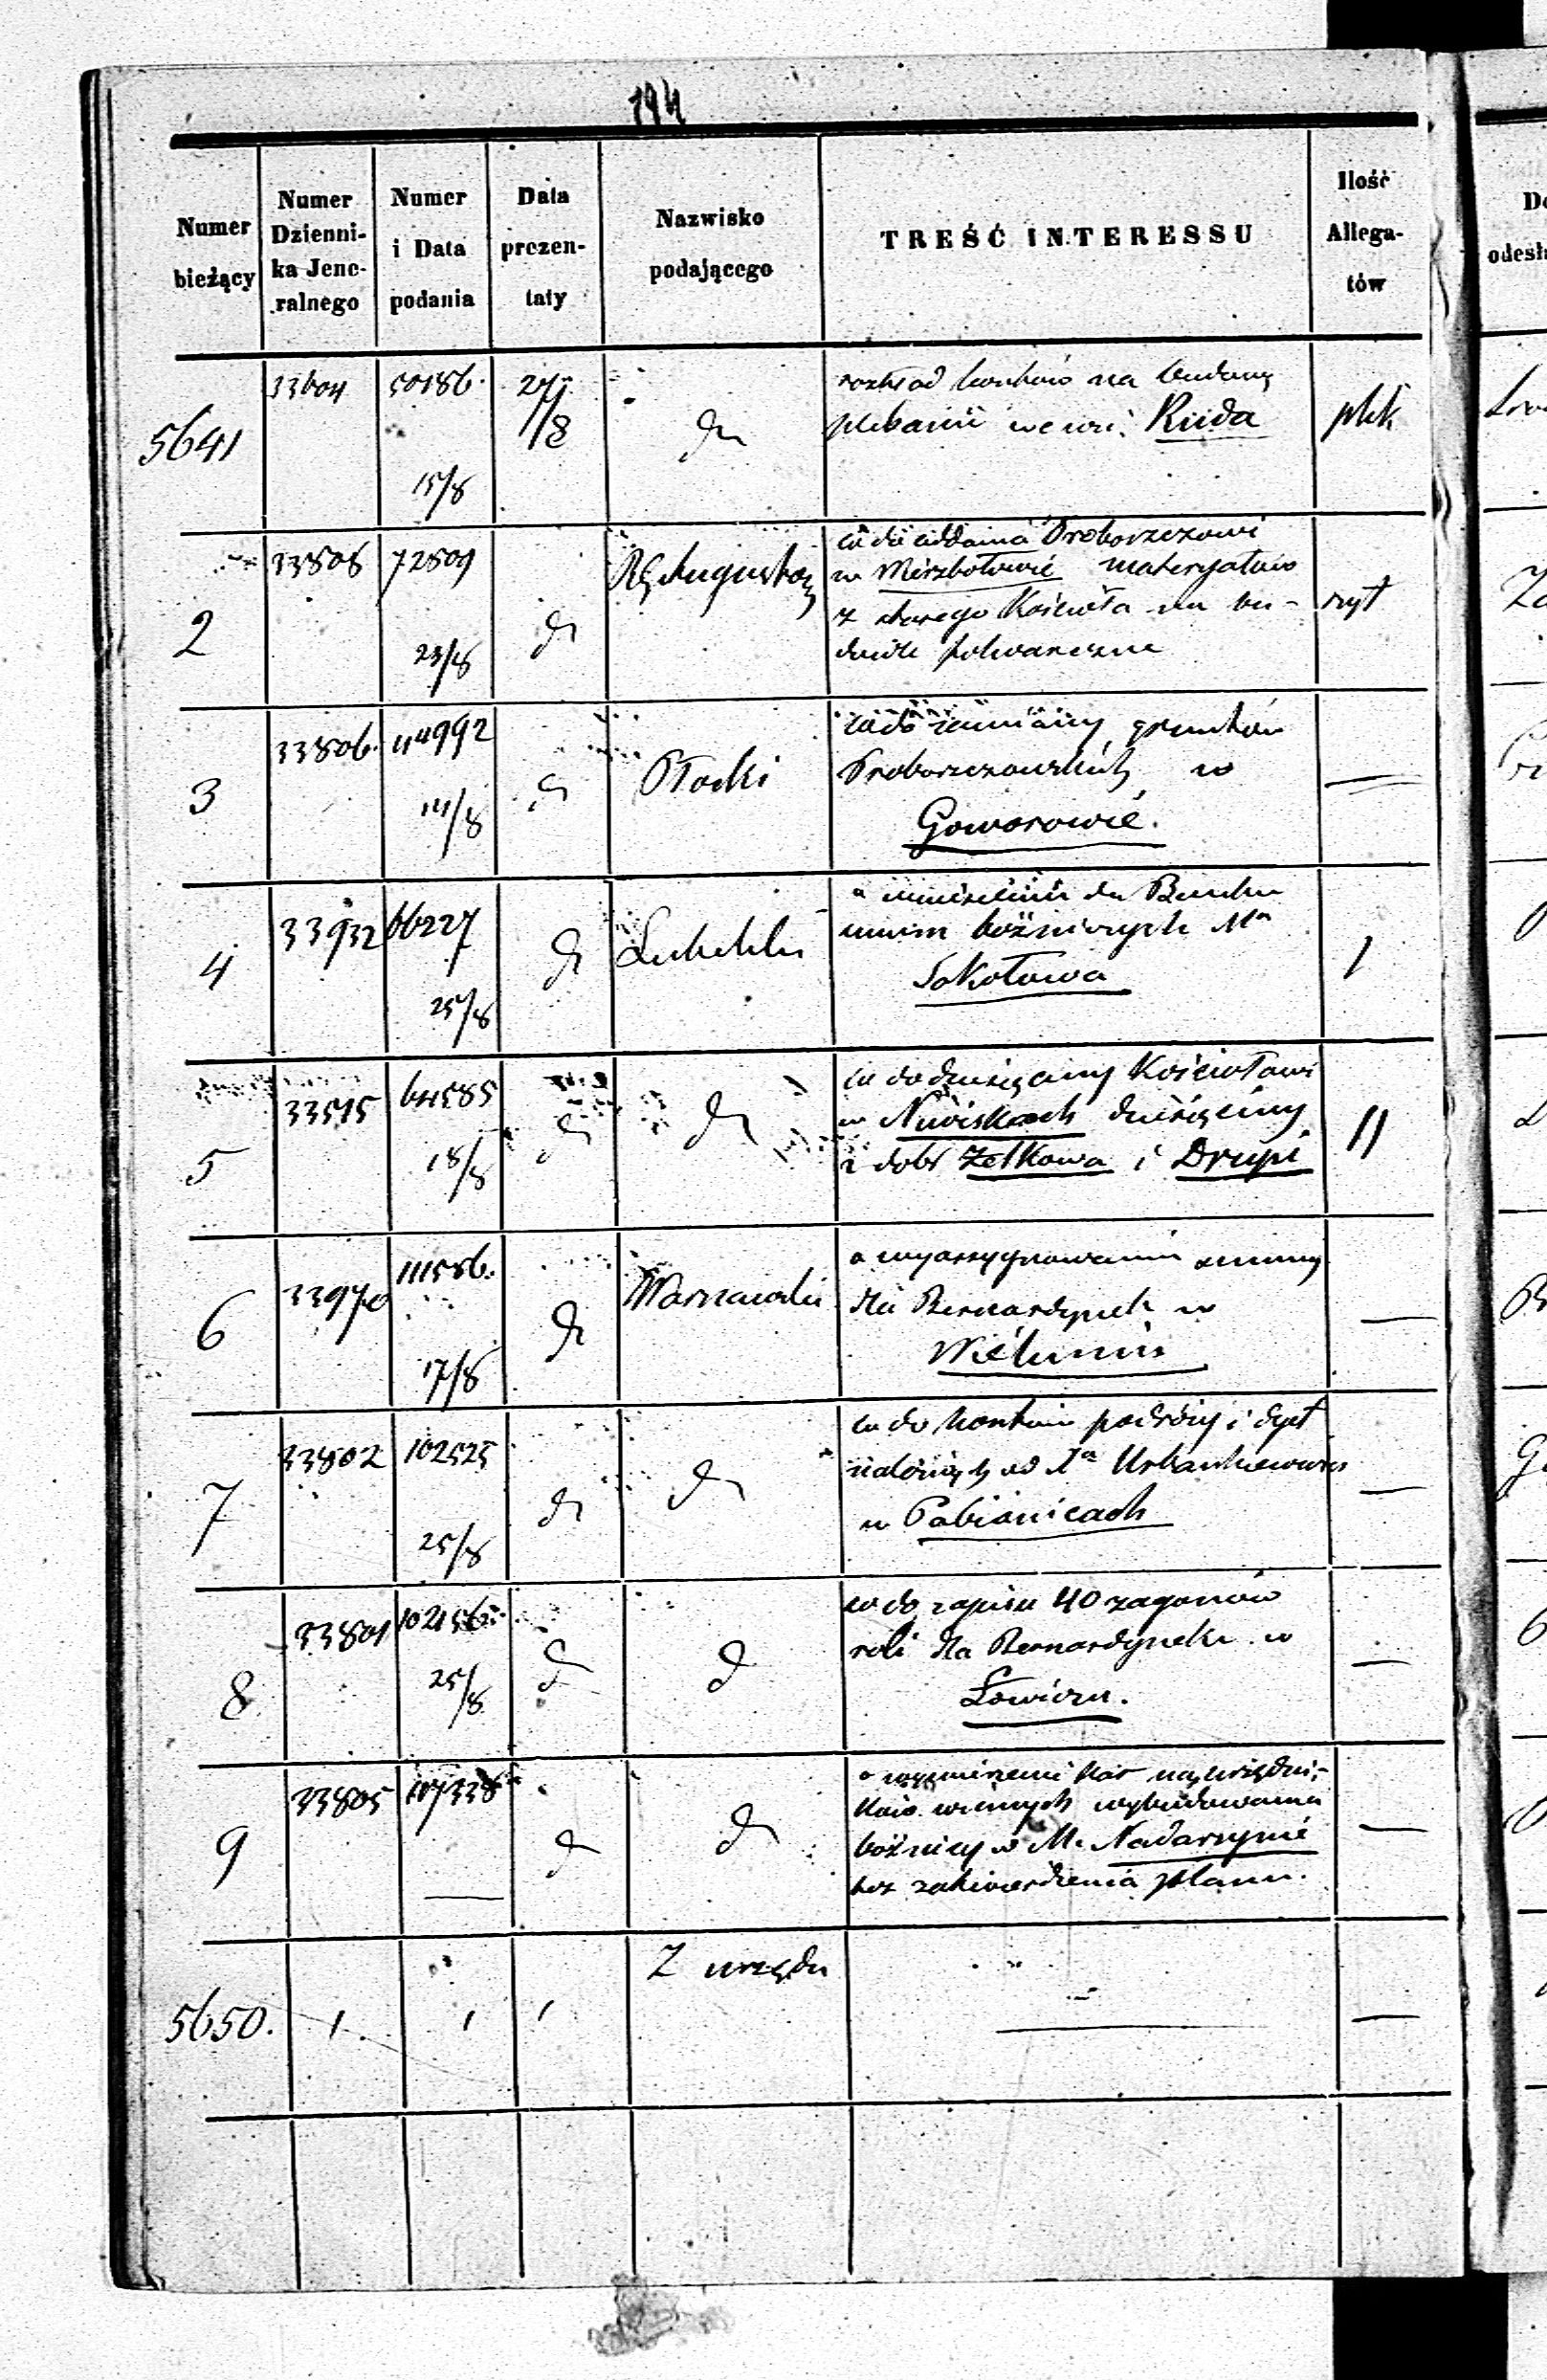 194
Numer bieżący
Numer Dzienni- ka Jene- ralnego
Numer i Data podania
Data prezen- taty
Nazwisko podającego
TREŚĆ INTERESSU
Ilość Allega- tów
5641 33604 50186. 15/8 27/8 dn
rozkład kosztów na budowę
plebanii we wsi. Ruda
plik
2 33808 72509 23/8 dn RG Augustow
co do oddania Proboszczowi
w Wierzbołowie materyałów
z starego Kościoła na bu-
dowle folwarczne
szyt
3 33806. 114992 14/8 dn Płocki
co do zamiany gruntów
Proboszczowskich w
Goworowie.
—
4 33932 66227 25/8 dn Lubelski
o umieszczenie do Banku
summ bóżniczych Ma
Sokołowa
1
5 33515 64585 18/8 dn dn
co do dziesięciny Kościołowi
w Niwiskach dziesięciny
z dóbr Żelkowa i Drupi
11
6 33970 111586. 17/8 dn Warszawski
o wyassygnowanie summy
dla Bernardynek w
Wieluniu
—
7 33802 102525 25/8 dn dn
co do kosztów podróży i dyet
należnych od Urbankiewicza
w Pabianicach
—
8 33801 102156. 25/8 d d
co do zapisu 40 zagonów
roli dla Bernardynek w
Łowiczu.
—
9 33805 117338 — dn dn
o wymierzenie kar na urzędni-
ków winnych wybudowania
bóżnicy w M. Nadarzynie
bez zatwierdzenia planu.
—
5650. Z urzędu
—